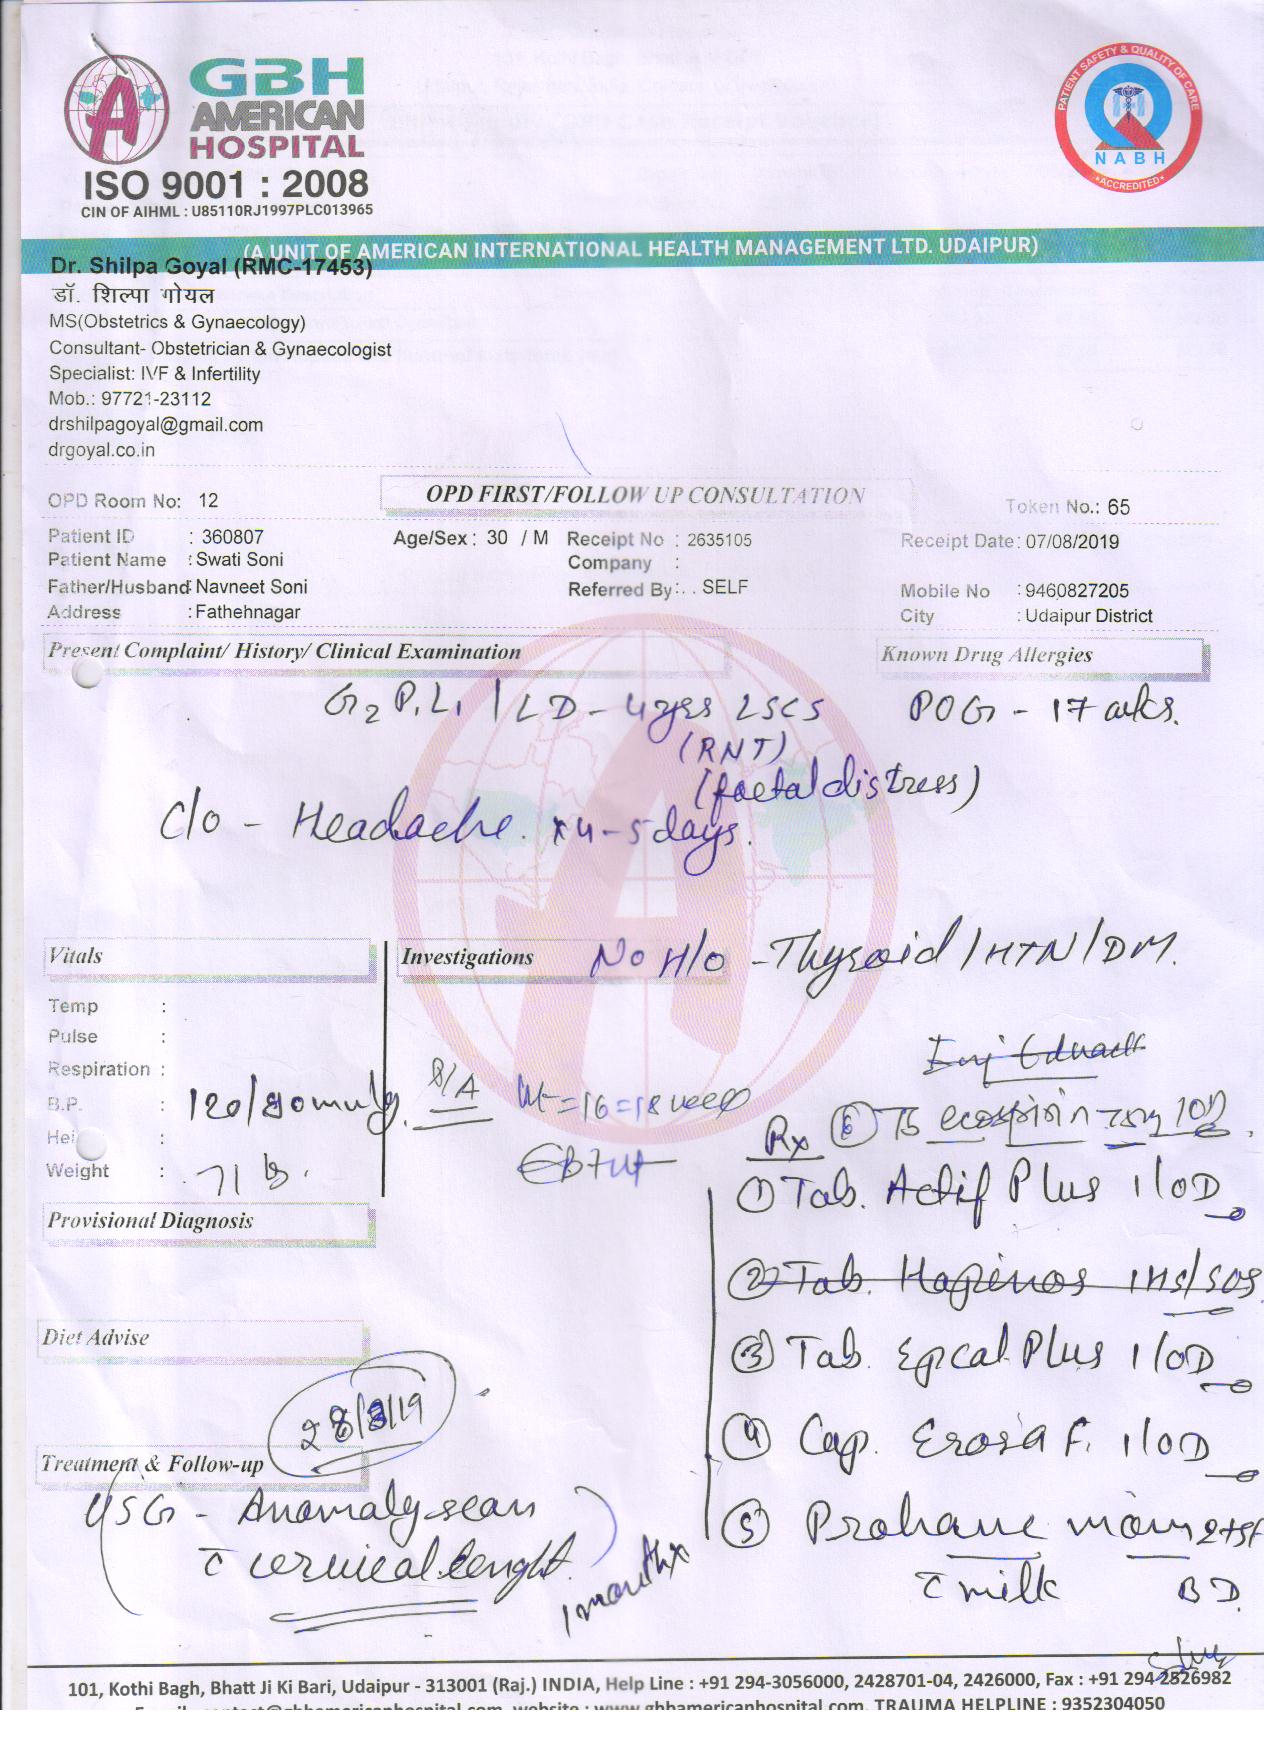 GBH
AMERICAN
HOSPITAL
ISO 9001 : 2008
CIN OF AIHML : U85110RJ1997PLC013965
PATIENT SAFETY & QUALITY OF CARE
NABH
ACCREDITED
(A UNIT OF AMERICAN INTERNATIONAL HEALTH MANAGEMENT LTD. UDAIPUR)
Dr. Shilpa Goyal (RMC-17453)
डॉ. शिल्पा गोयल
MS(Obstetrics & Gynaecology)
Consultant- Obstetrician & Gynaecologist
Specialist: IVF & Infertility
Mob.: 97721-23112
drshilpagoyal@gmail.com
drgoyal.co.in
OPD Room No: 12 OPD FIRST/FOLLOW UP CONSULTATION Token No.: 65
Patient ID : 360807 Age/Sex : 30 / M Receipt No : 2635105 Receipt Date: 07/08/2019
Patient Name : Swati Soni Company :
Father/Husband: Navneet Soni Referred By: . . SELF Mobile No : 9460827205
Address : Fathehnagar City : Udaipur District
Present Complaint/ History/ Clinical Examination Known Drug Allergies
G2P1L1 / LD - 4yrs LSCS POG - 17 wks.
(RNT)
(foetal distress)
C/o - Headache. x 4-5 days.
Vitals Investigations No H/o - Thyroid / HTN / DM.
Temp :
Pulse :
Respiration :
B.P. : 120/80 mmhg.
Weight : 71
Inj
Rx ⑥ ecosprin 75mg
① Tab. Actif Plus 1/OD
Provisional Diagnosis
② Tab. 1HS/SOS
Diet Advise
③ Tab. Epcal Plus 1/OD
28/8/19
④ Cap. F. 1/OD
Treatment & Follow-up
USG - Anomaly scan
c cervical lenght.
1 month x
⑤ Prohane mom 2tsf
c milk BD.
101, Kothi Bagh, Bhatt Ji Ki Bari, Udaipur - 313001 (Raj.) INDIA, Help Line : +91 294-3056000, 2428701-04, 2426000, Fax : +91 294-2526982
www.gbhamericanhospital.com, TRAUMA HELPLINE : 9352304050